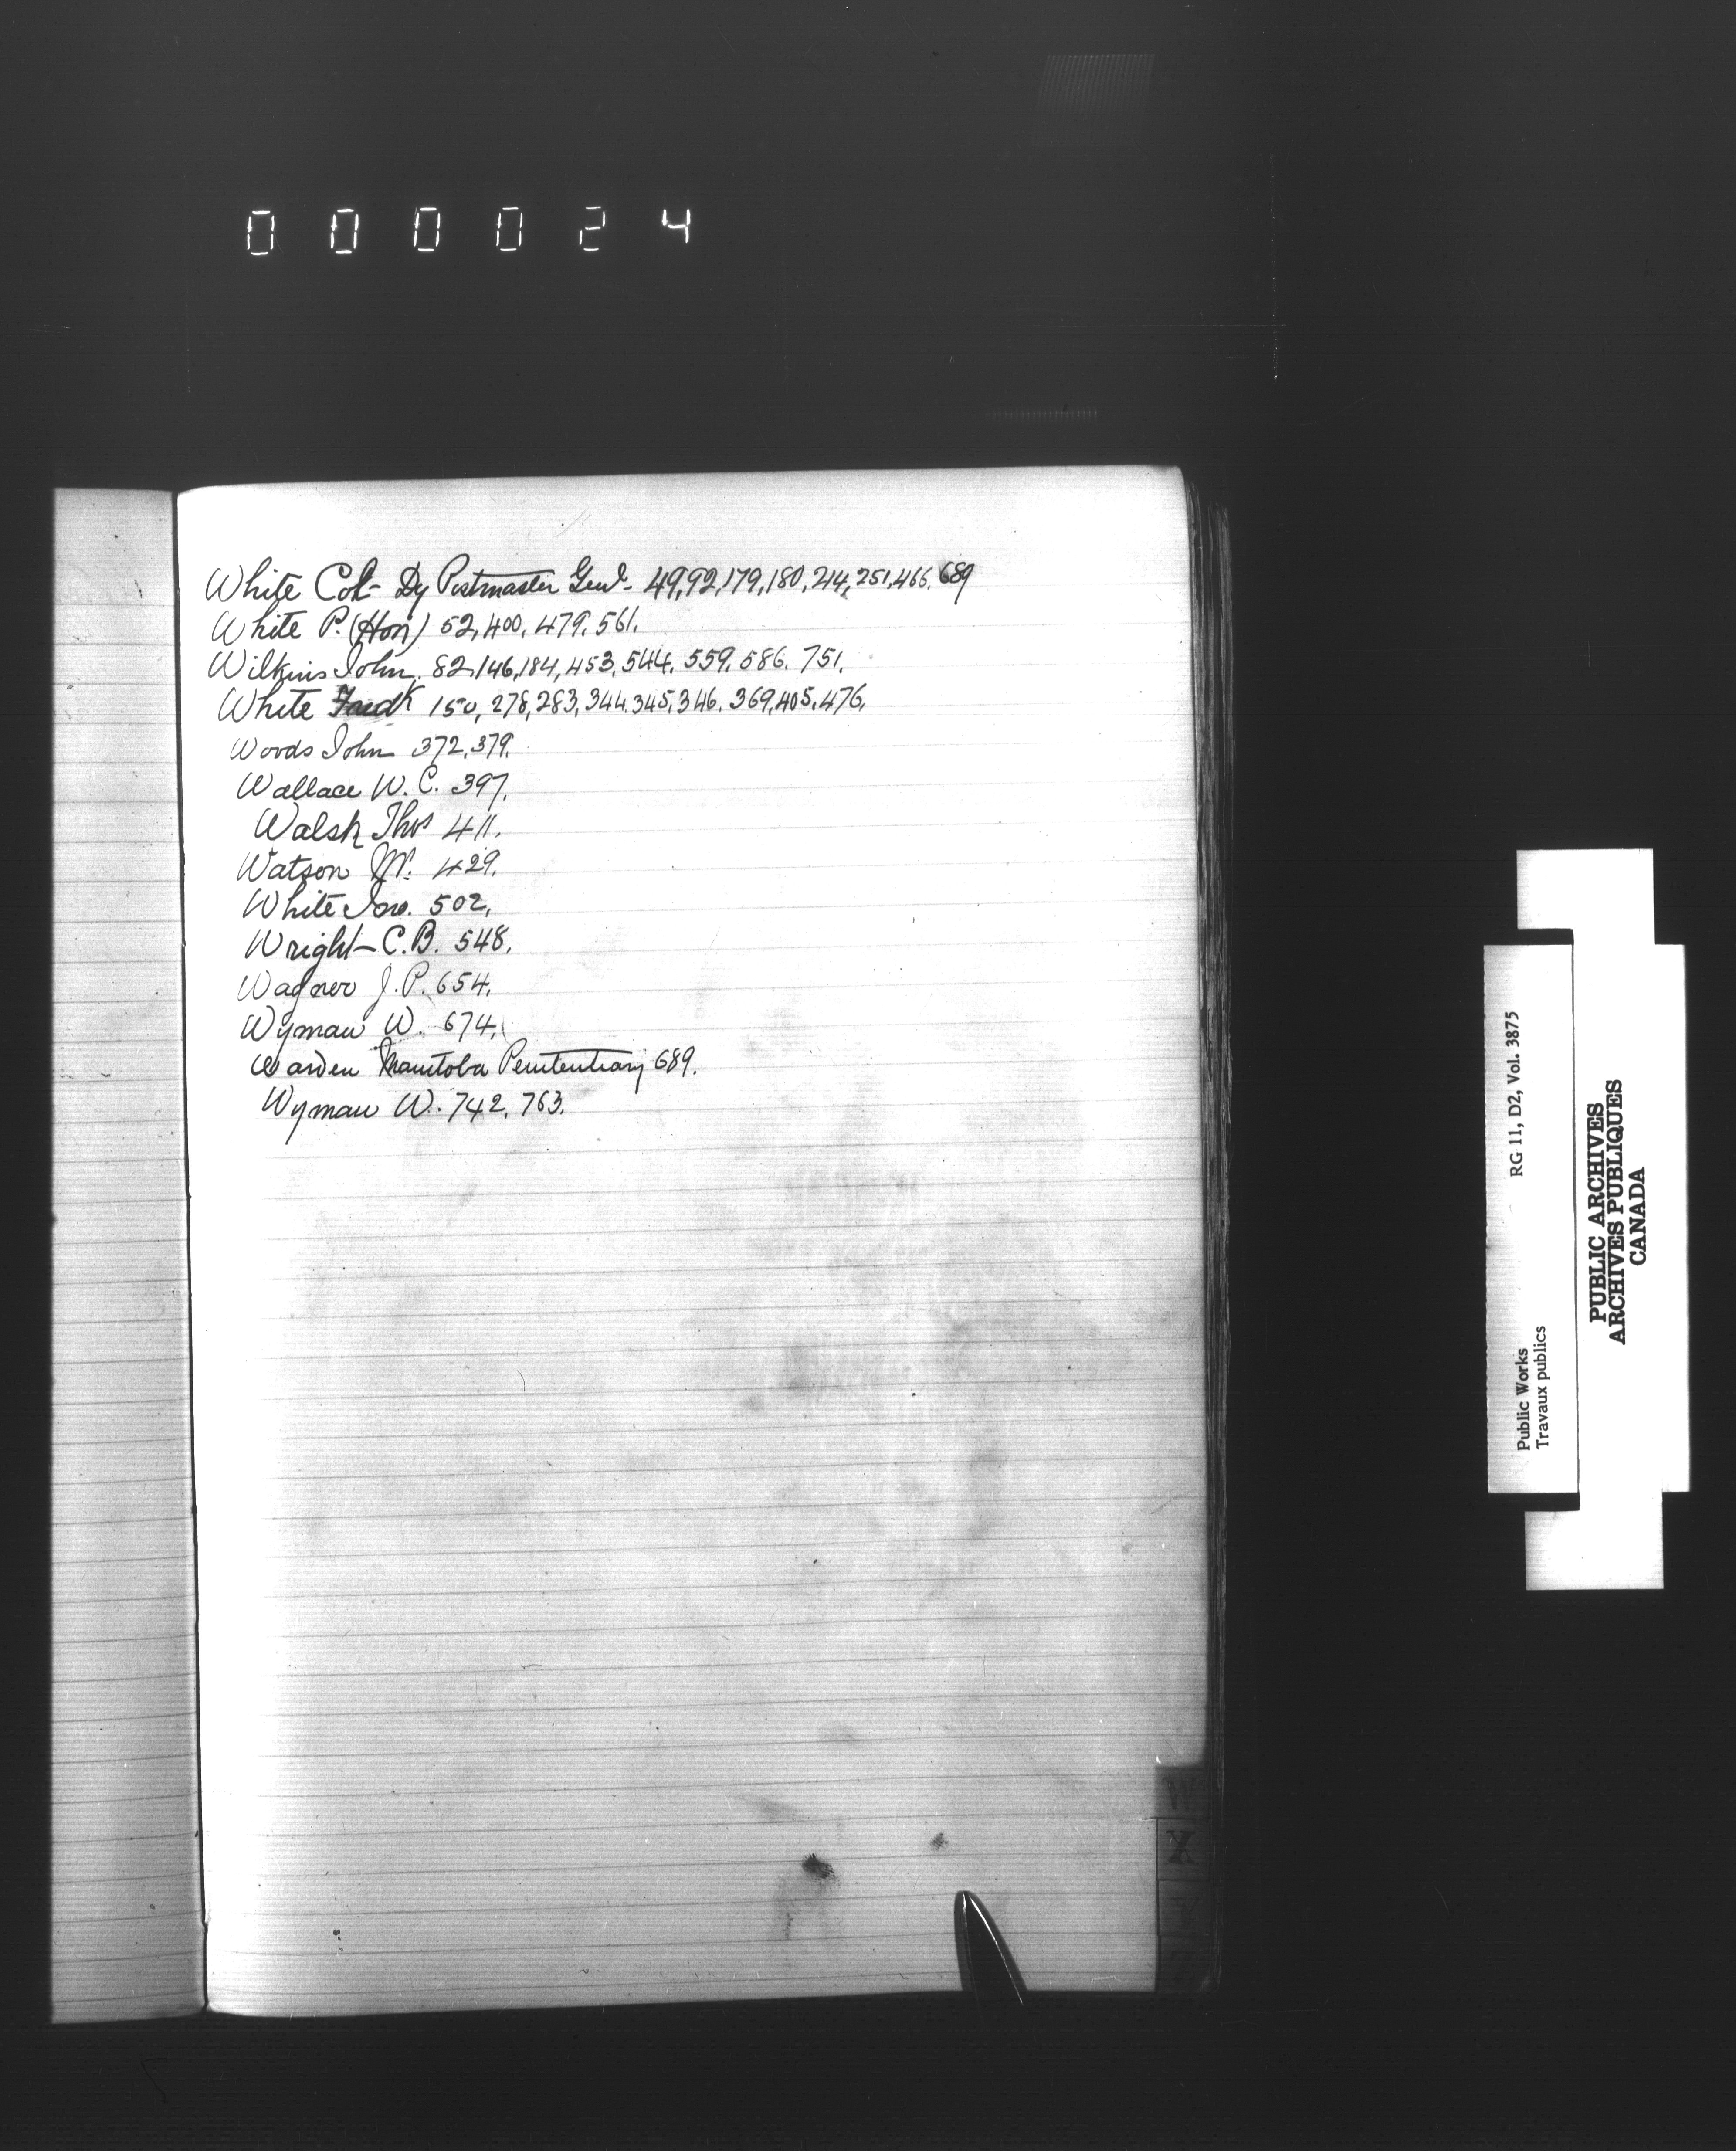 000024
White Col- Dy Postmaster Genl- 49,92,179,180,214,251,466,689
White P. (Hon) 52,400,479,561.
Wilkins John, 82,146,184,453,544,559,586,751.
White Fredk 150,278,283,344,345,346,369,405,476,
Woods John 372,379.
Wallace W. C. 397.
Walsh Thos 411.
Watson Mr. 429.
White Jno. 502,
Wright- C.B. 548.
Wagner J. P. 654.
Wyman W. 674,
Warden Manitoba Penitentiary 689.
Wyman W. 742, 763.
W
X
Y
Z
Public Works
Travaux publics
RG 11, D2, Vol. 3875
PUBLIC ARCHIVES
ARCHIVES PUBLIQUES
CANADA